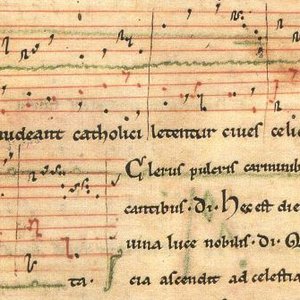 udeant catholici letentur ciues celi
Clerus pulcris carminib
cantibus · di · Hec est die
uina luce nobilis · di · Q
ta. cia ascendit ad celestia